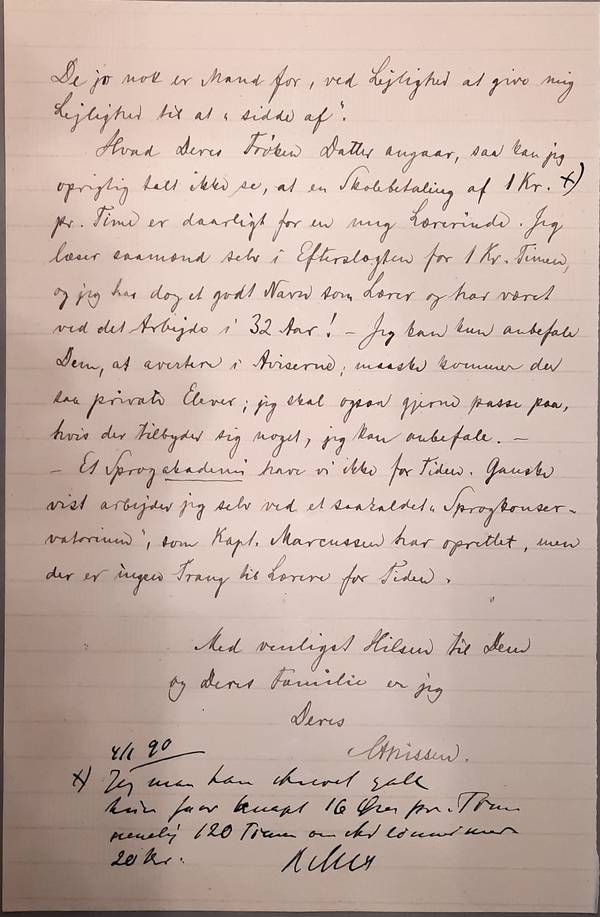 De jo nok er Mand for, ved Lejlighed at give mig
Lejlighed til at "sidde af".
Hvad Deres Frøken Datter angaar, saa kan jeg
oprigtig talt ikke se, at en Skolebetaling af 1 Kr. x)
pr. Time er daarligt for en ung Lærerinde. Jeg
læser saamænd selv i Efterslægten for 1 Kr. Timen,
og jeg har dog et godt Navn som Lærer og har været
ved det Arbejde i 32 Aar! – Jeg kan kun anbefale
Dem, at avertere i Aviserne, maaske kommer der
saa private Elever; jeg skal ogsaa gjerne passe paa,
hvis der tilbyder sig noget, jeg kan anbefale. –
– Et Sprogakademi have vi ikke for Tiden. Ganske
vist arbejder jeg selv ved et saakaldet "Sprogkonser-
vatorium", som Kapt. Marcussen har oprettet, men
der er ingen Trang til Lærere for Tiden.
Med venligst Hilsen til Dem
og Deres Familie er jeg
Deres
4/1 90
x) Jeg maa have skrevet galt
hun faar knapt 16 Øre pr. Time
nemlig 120 Timer om
20 Kr.